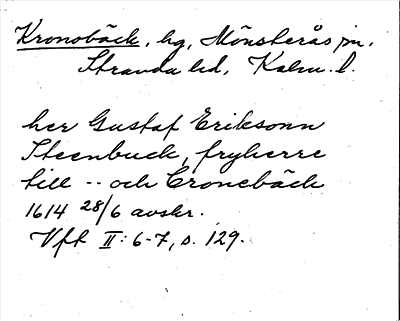 Kronobäck, hg, Mönsterås sn,
Stranda hd, Kalm. l.
her Gustaf Eriksonn
Steenbuck, fryherre
till -- och Cronebäck
1614 28/6 avskr.
Vft II: 6-7, s. 129.